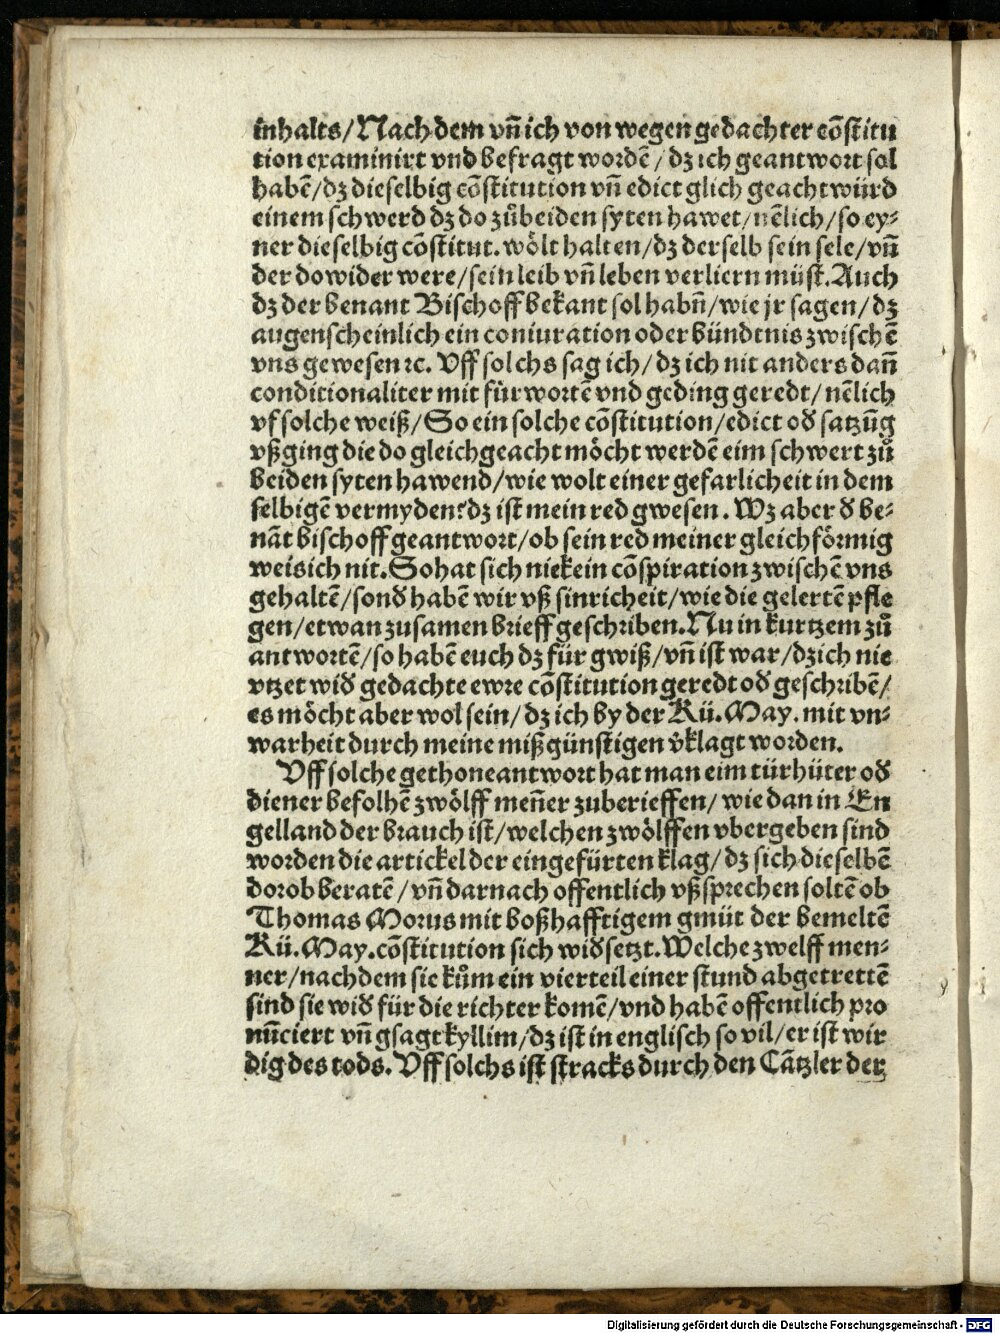 inhalts/Nach dem vñ ich von wegen gedachter cõstitu
tion examinirt vnd befragt wordẽ/ dz ich geantwort sol
habẽ/dz dieselbig cõstitution vñ edict glich geacht würd
einem schwerd dz do zůbeiden syten hawet/nẽlich/so ey⸗
ner dieselbig cõstitut. wölt halten/dz derselb sein sele/vñ
der dowider were/sein leib vñ leben verliern müst. Auch
dz der benant Bischoff bekant sol habñ/wie jr sagen/dz
augenscheinlich ein coniuration oder bündtnis zwischẽ
vns gewesen ⁊c. Vff solchs sag ich/dz ich nit anders dañ
conditionaliter mit fürwortẽ vnd geding geredt/nẽlich
vf solche weiß/So ein solche cõstitution/edict oď satzũg
vßging die do gleichgeacht möcht werdẽ eim schwert zů
beiden syten hawend/wie wolt einer gefarlicheit in dem
selbigẽ vermyden? dz ist mein red gwesen. Wz aber ď be⸗
nãt bischoff geantwort/ob sein red meiner gleichförmig
weis ich nit. So hat sich niekein cõspiration zwischẽ vns
gehaltẽ/sonď habẽ wir vß sinricheit/wie die gelertẽ pfle
gen/etwan zusamen brieff geschriben. Nu in kurtzem zů
antwortẽ/so habẽ euch dz für gwiß/vñ ist war/dz ich nie
vtzet wiď gedachte ewre cõstitution geredt oď geschribẽ/
es möcht aber wol sein/dz ich by der Kü. May. mit vn⸗
warheit durch meine mißgünstigen v̊klagt worden.
Vff solche gethone antwort hat man eim türhüter oď
diener befolhẽ zwölff meñer zuberieffen/ wie dan in En
gelland der brauch ist/welchen zwölffen vbergeben sind
worden die artickel der eingefürten klag/dz sich dieselbẽ
dorob beratẽ/vñ darnach offentlich vßsprechen soltẽ ob
Thomas Morus mit boßhafftigem gmüt der bemeltẽ
Kü. May. cõstitution sich wiďsetzt. Welche zwelff men⸗
ner/nachdem sie kům ein vierteil einer stund abgetrettẽ
sind sie wiď für die richter komẽ/vnd habẽ offentlich pro
nũciert vñ gsagt kyllim/dz ist in englisch so vil/er ist wir
dig des tods. Vff solchs ist stracks durch den Cãtzler der
Digitalisierung gefördert durch die Deutsche Forschungsgemeinschaft - DFG